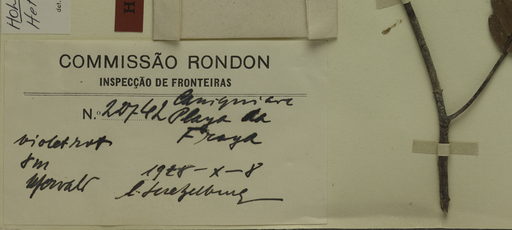 HOL
Het
det.
H
COMMISSÃO RONDON
INSPECÇÃO DE FRONTEIRAS
N. 20742 Playa da
Fraga
violetrot
8m
Uferwald
1928-X-8